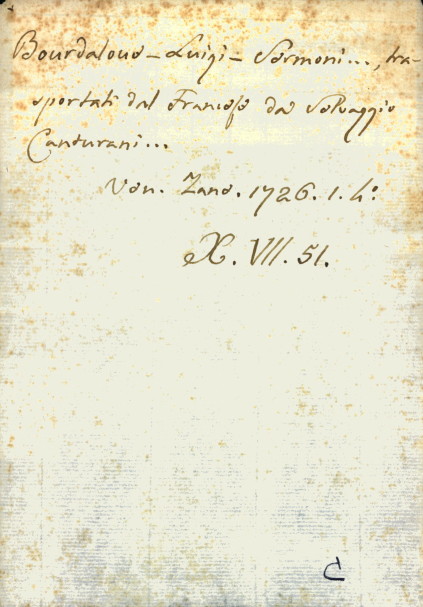 Bourdaloue - Luigi - Sermoni..., tra-
sportati dal Francese da Selvaggio
Canturani...
Ven. Zane. 1726. 1. 4º.
X. VII. 51.
C